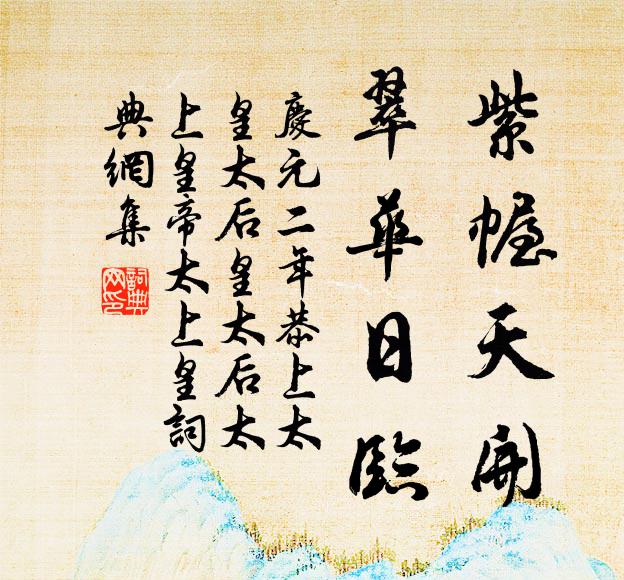 紫幄天開
翠華日臨
慶元二年恭上太
皇太后皇太后太
上皇帝太上皇詞
典網集
詞典網印